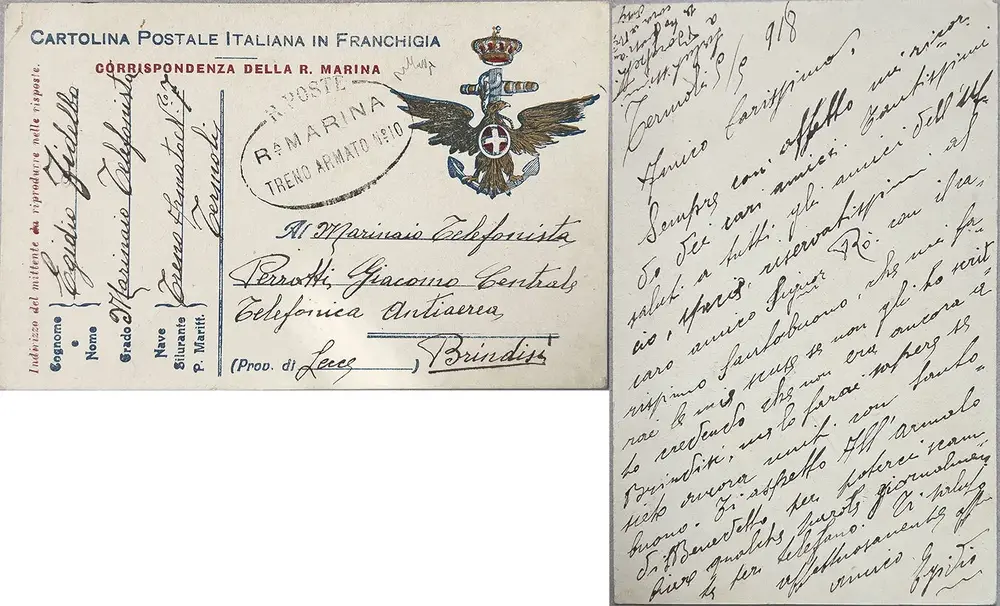 CARTOLINA POSTALE ITALIANA IN FRANCHIGIA
CORRISPONDENZA DELLA R. MARINA
R. POSTE
Rª MARINA
TRENO ARMATO Nº 10
Indirizzo del mittente da riprodurre nelle risposte.
Cognome e Nome Egidio Fidello
Grado Marinaio Telefonista
Nave Silurante P. Maritt. Treno Armato N. 7
Termoli
Al Marinaio Telefonista
Perrotti Giacomo Centrale
Telefonica Antiaerea
(Prov. di Lecce) Brindisi
Termoli 5/9 918
Amico Carissimo,
Sempre con affetto mi ricor-
do dei cari amici. Tantissimi
saluti a tutti gli amici dell'
riservatissimi al
caro amico con il ca-
rissimo Santobuono, che mi fa-
rai le mie scuse se non gli ho scrit-
to credendo che non era ancora a
Brindisi, ma lo farai sapere se
siete ancora uniti con Santo
buono. Ti aspetto All'Armato
di Benedetto per poterci scam
biare qualche parola giornalmen
te per telefano. Ti saluto
affettuosamente aff
amico Egidio